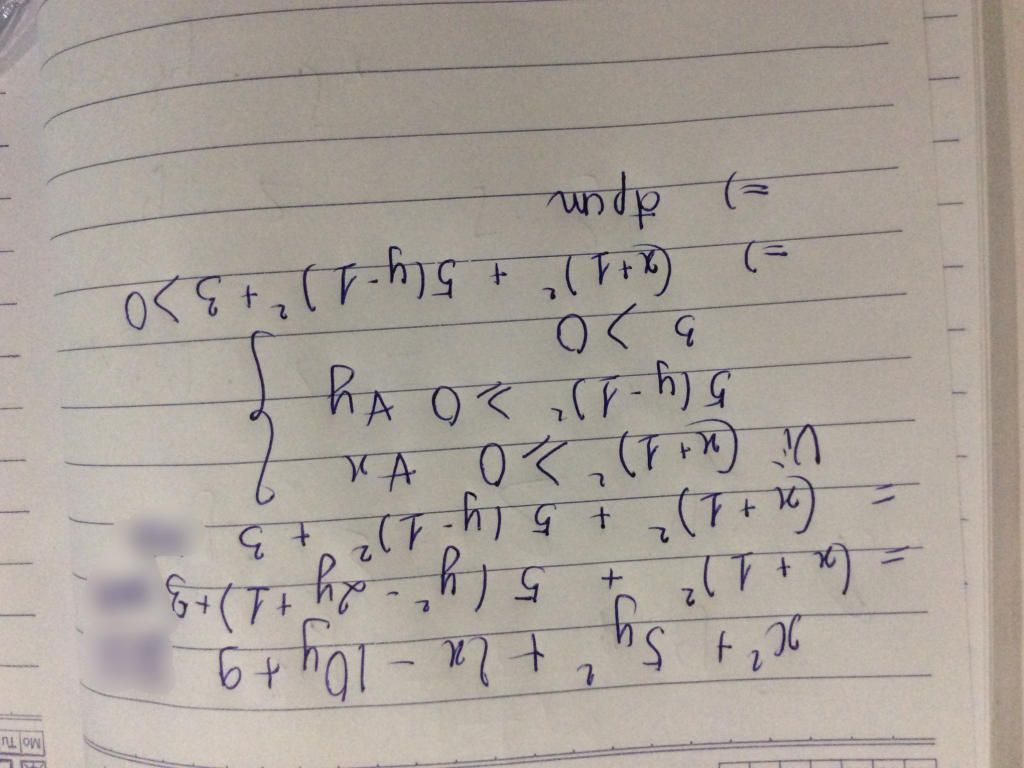 x² + 5y² + 2x - 10y + 9
= (x + 1)² + 5(y² - 2y + 1) + 3
= (x + 1)² + 5(y - 1)² + 3
Vì (x+1)² ≥ 0 ∀x
5(y - 1)² ≥ 0 ∀y
3 > 0
=) (x+1)² + 5(y-1)² + 3 > 0
=) đpcm
Mo Tu